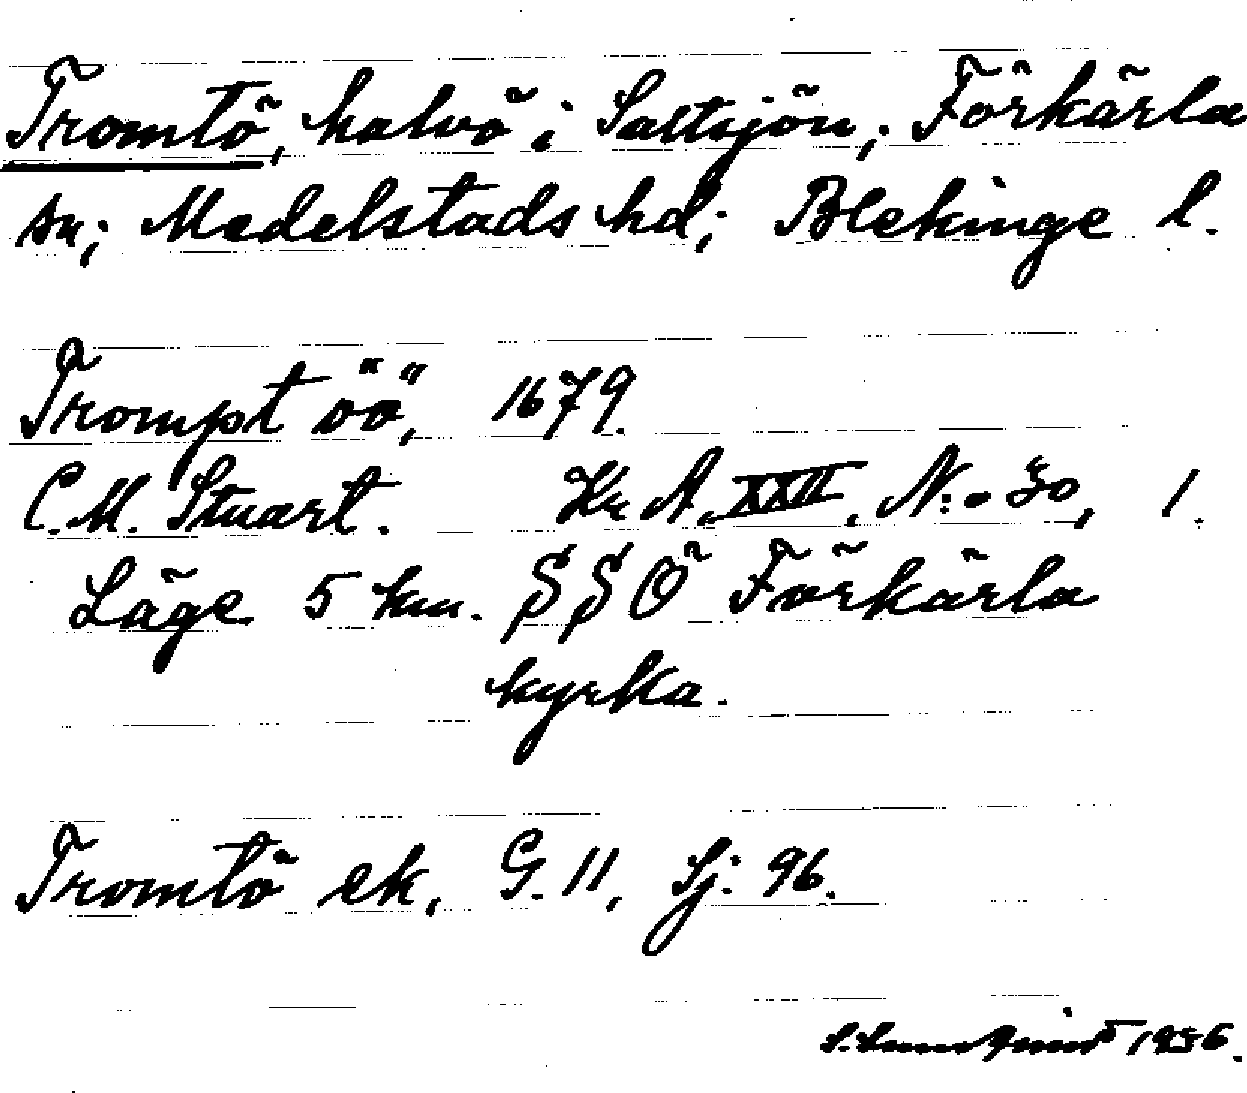 Tromtö, halvö i Saltsjön; Förkärla
sn; Medelstads hd; Blekinge l.
Trompt öö, 1679.
C.M. Stuart. Kr A. XXII, N:o 30, 1.
Läge 5 km. SSÖ Förkärla
kyrka.
Tromtö ek, G. 11, Sj: 96.
1956.